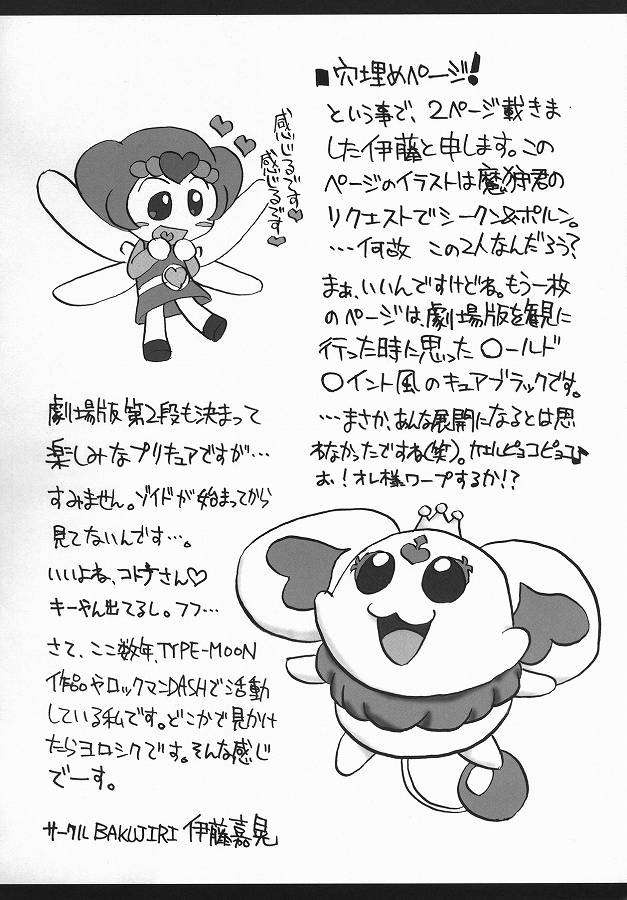 ■穴埋めページ!
という事で、2ページ載きま
した伊藤と申します。この
ページのイラストは魔狩君の
リクエストでシークン&ポルン。
…何故 この2人なんだろう?
まぁ、いいんですけどね。もう一枚
のページは、劇場版を観に
行った時に思った〇ールド
〇イント風のキュアブラックです。
…まさか、あんな展開になるとは思
わなかったですね(笑)。カエルピョコピョコ♪
お!オレ様、ワープするか!?
感じるです♥
感じるです♥
劇場版第2段も決まって
楽しみなプリキュアですが…
すみません。ゾイドが始まってから
見てないんです…。
いいよね、コトナさん♡
キーやん出てるし。フフ…
さて、ここ数年、TYPE-MOON
作品やロックマンDASHで活動
している私です。どこかで見かけ
たらヨロシクです。そんな感じ
でーす。
サークルBAKUJIRI 伊藤嘉晃